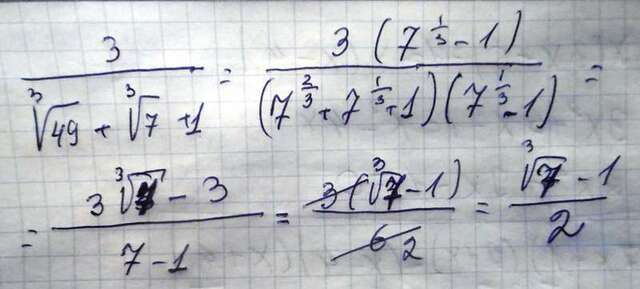 3/(∛49 + ∛7 + 1) = 3(7^(1/3) - 1)/((7^(2/3) + 7^(1/3) + 1)(7^(1/3) - 1)) =
= (3∛7 - 3)/(7 - 1) = 3(∛7 - 1)/6 2 = (∛7 - 1)/2